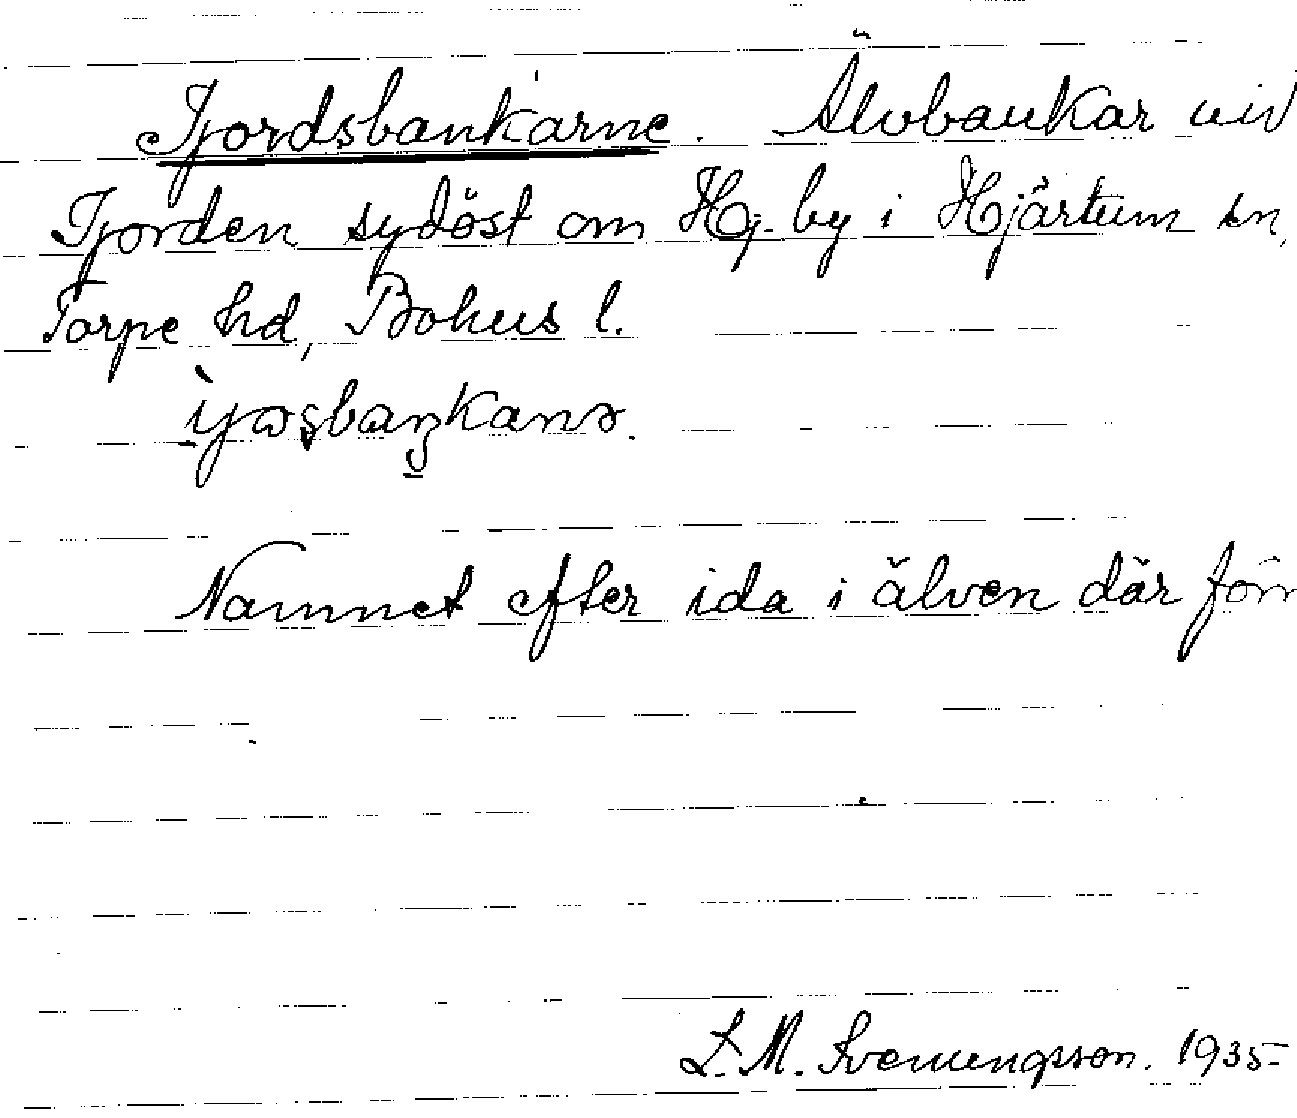 Jjordsbankarne. Älvbankar vid
Jjorden sydöst om Hj. by i Hjärtum sn,
Torpe hd, Bohus l.
Namnet efter ida i älven där förr
L. M. Svenungsson. 1935